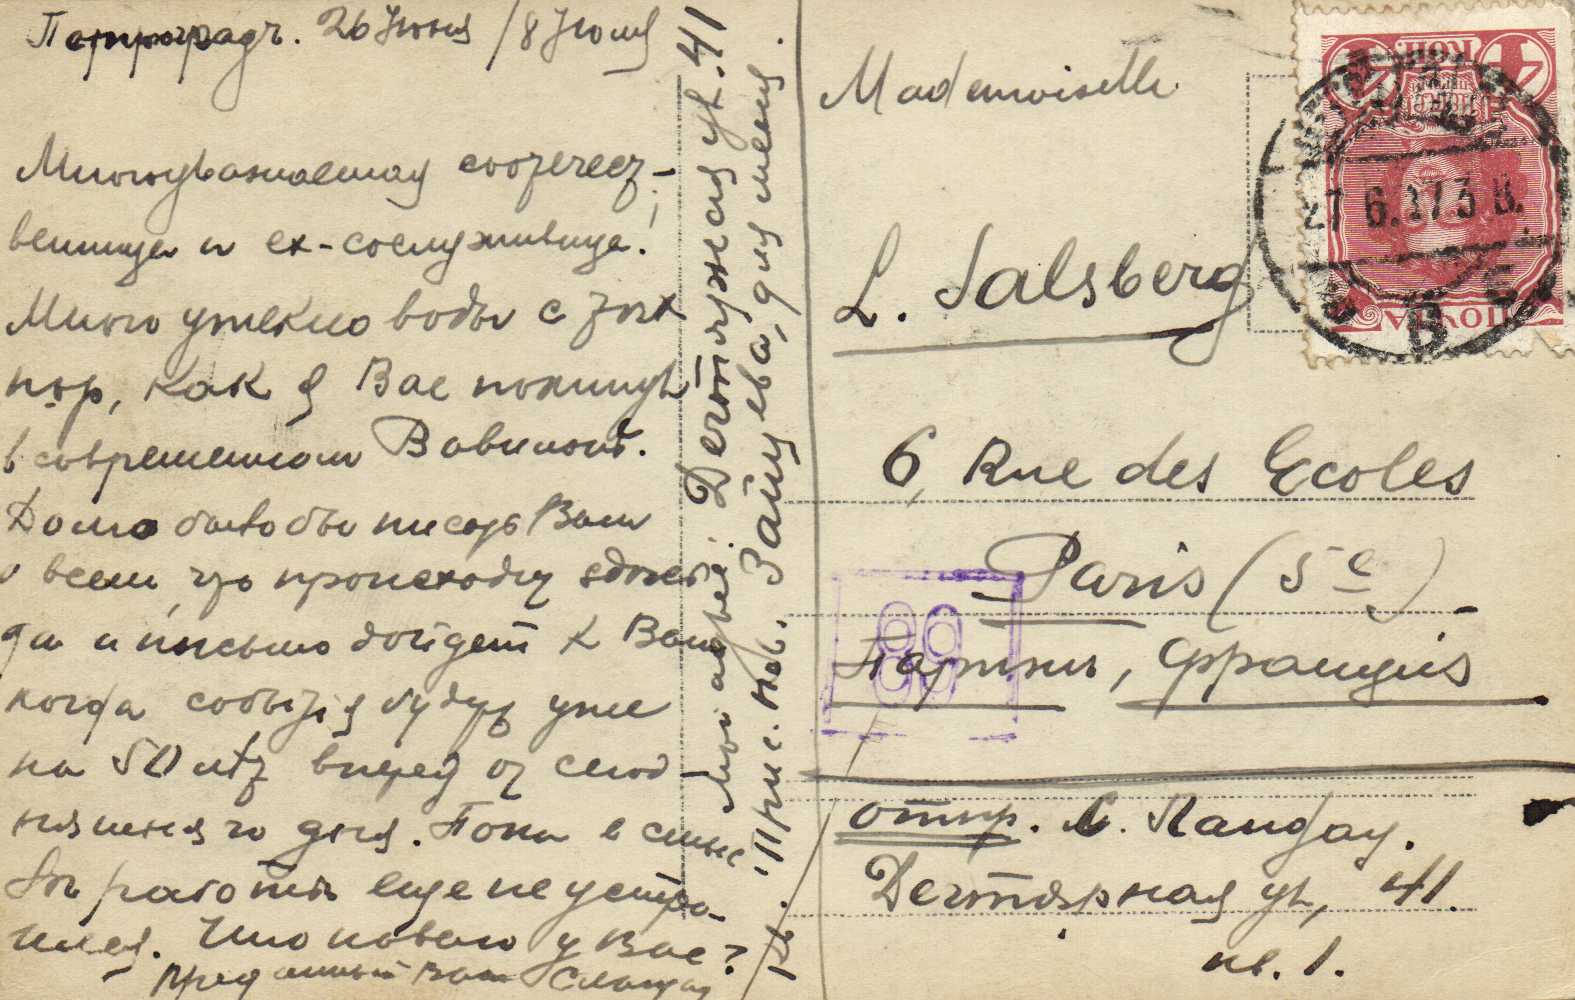 Петроградъ. 26 Июня / 8 Июля
Многоуважаемая соотечест-
венница и ех-сослуживица!
Много утекло воды с тех
пор, как я Вас покинул
в современном Вавилоне.
Долго было бы писать Вам
о всем, что происходит здесь
да и письмо дойдет к Вам
когда события будут уже
на 50 лет вперед от сегод-
няшняго дня. Пока в смыс
ле работы еще не устро-
ился. Что новаго у Вас?
Преданный Вам С. Ландау
Мой адрес: Дегтярная ул. 41
кв. Прис. пов. Зайцева, для меня.
Mademoiselle
L. Salsberg
6, Rue des Ecoles
Paris (5e)
Париж, Франция
отпр. С. Ландау.
Дегтярная ул, 41.
кв. 1.
89
4 КОП. 4
27 6.17 3 В.
6